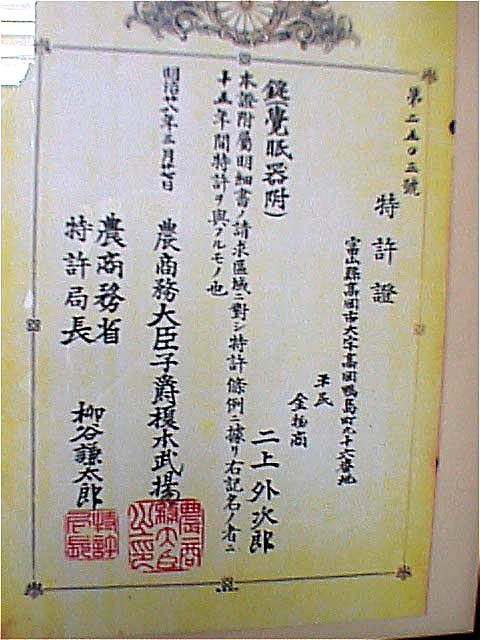 第二五〇五號
特許證
富山縣高岡市大字高岡鴨島町九十六番地
平民
金物商
二上外次郎
錠(覺眠器附)
本證附屬明細書ノ請求區域ニ對シ特許條例ニ據リ右記名ノ者ニ
十五年間特許ヲ與フルモノ也
明治廿八年三月廿七日
農商務大臣子爵榎本武揚
農商務省
特許局長
柳谷謙太郎
農商務大臣之印
特許局長